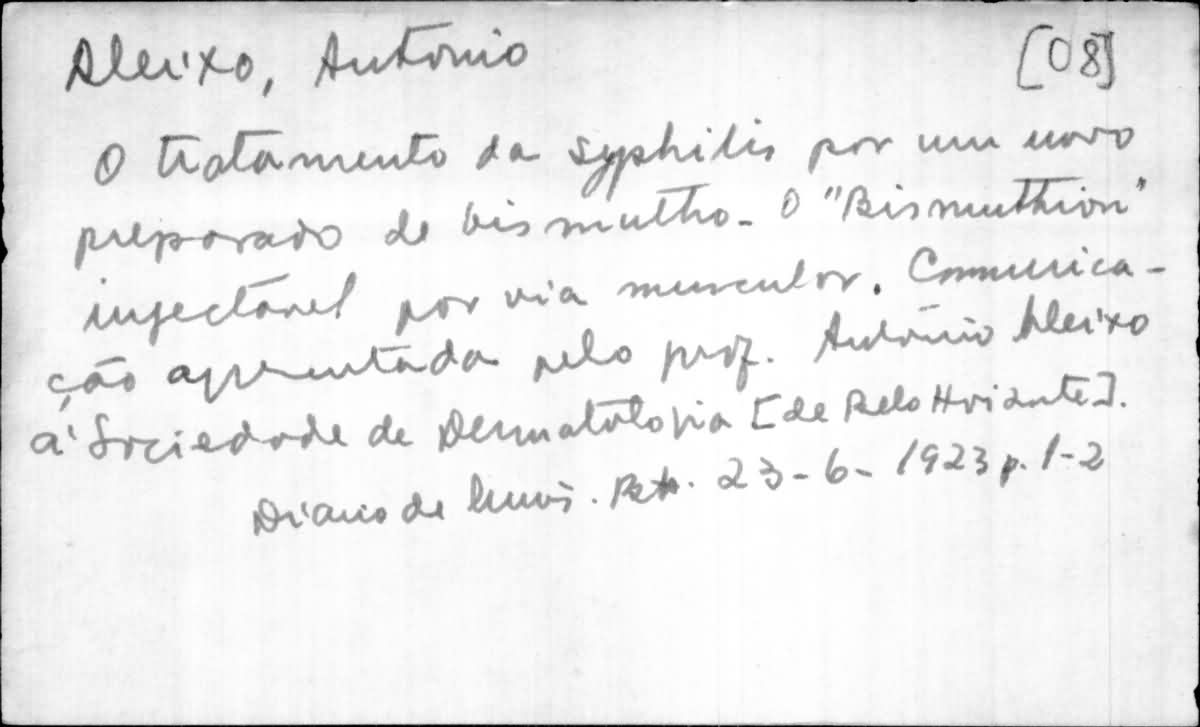 Aleixo, Antônio [08]
O tratamento da syphilis por um novo
preparado de bismutho - O "Bismuthion"
injectável por via muscular. Comunica-
ção apresentada pelo prof. Antônio Aleixo
à Sociedade de Dermatologia [de Belo Horizonte].
Diario de Minas. 23-6-1923 p. 1-2